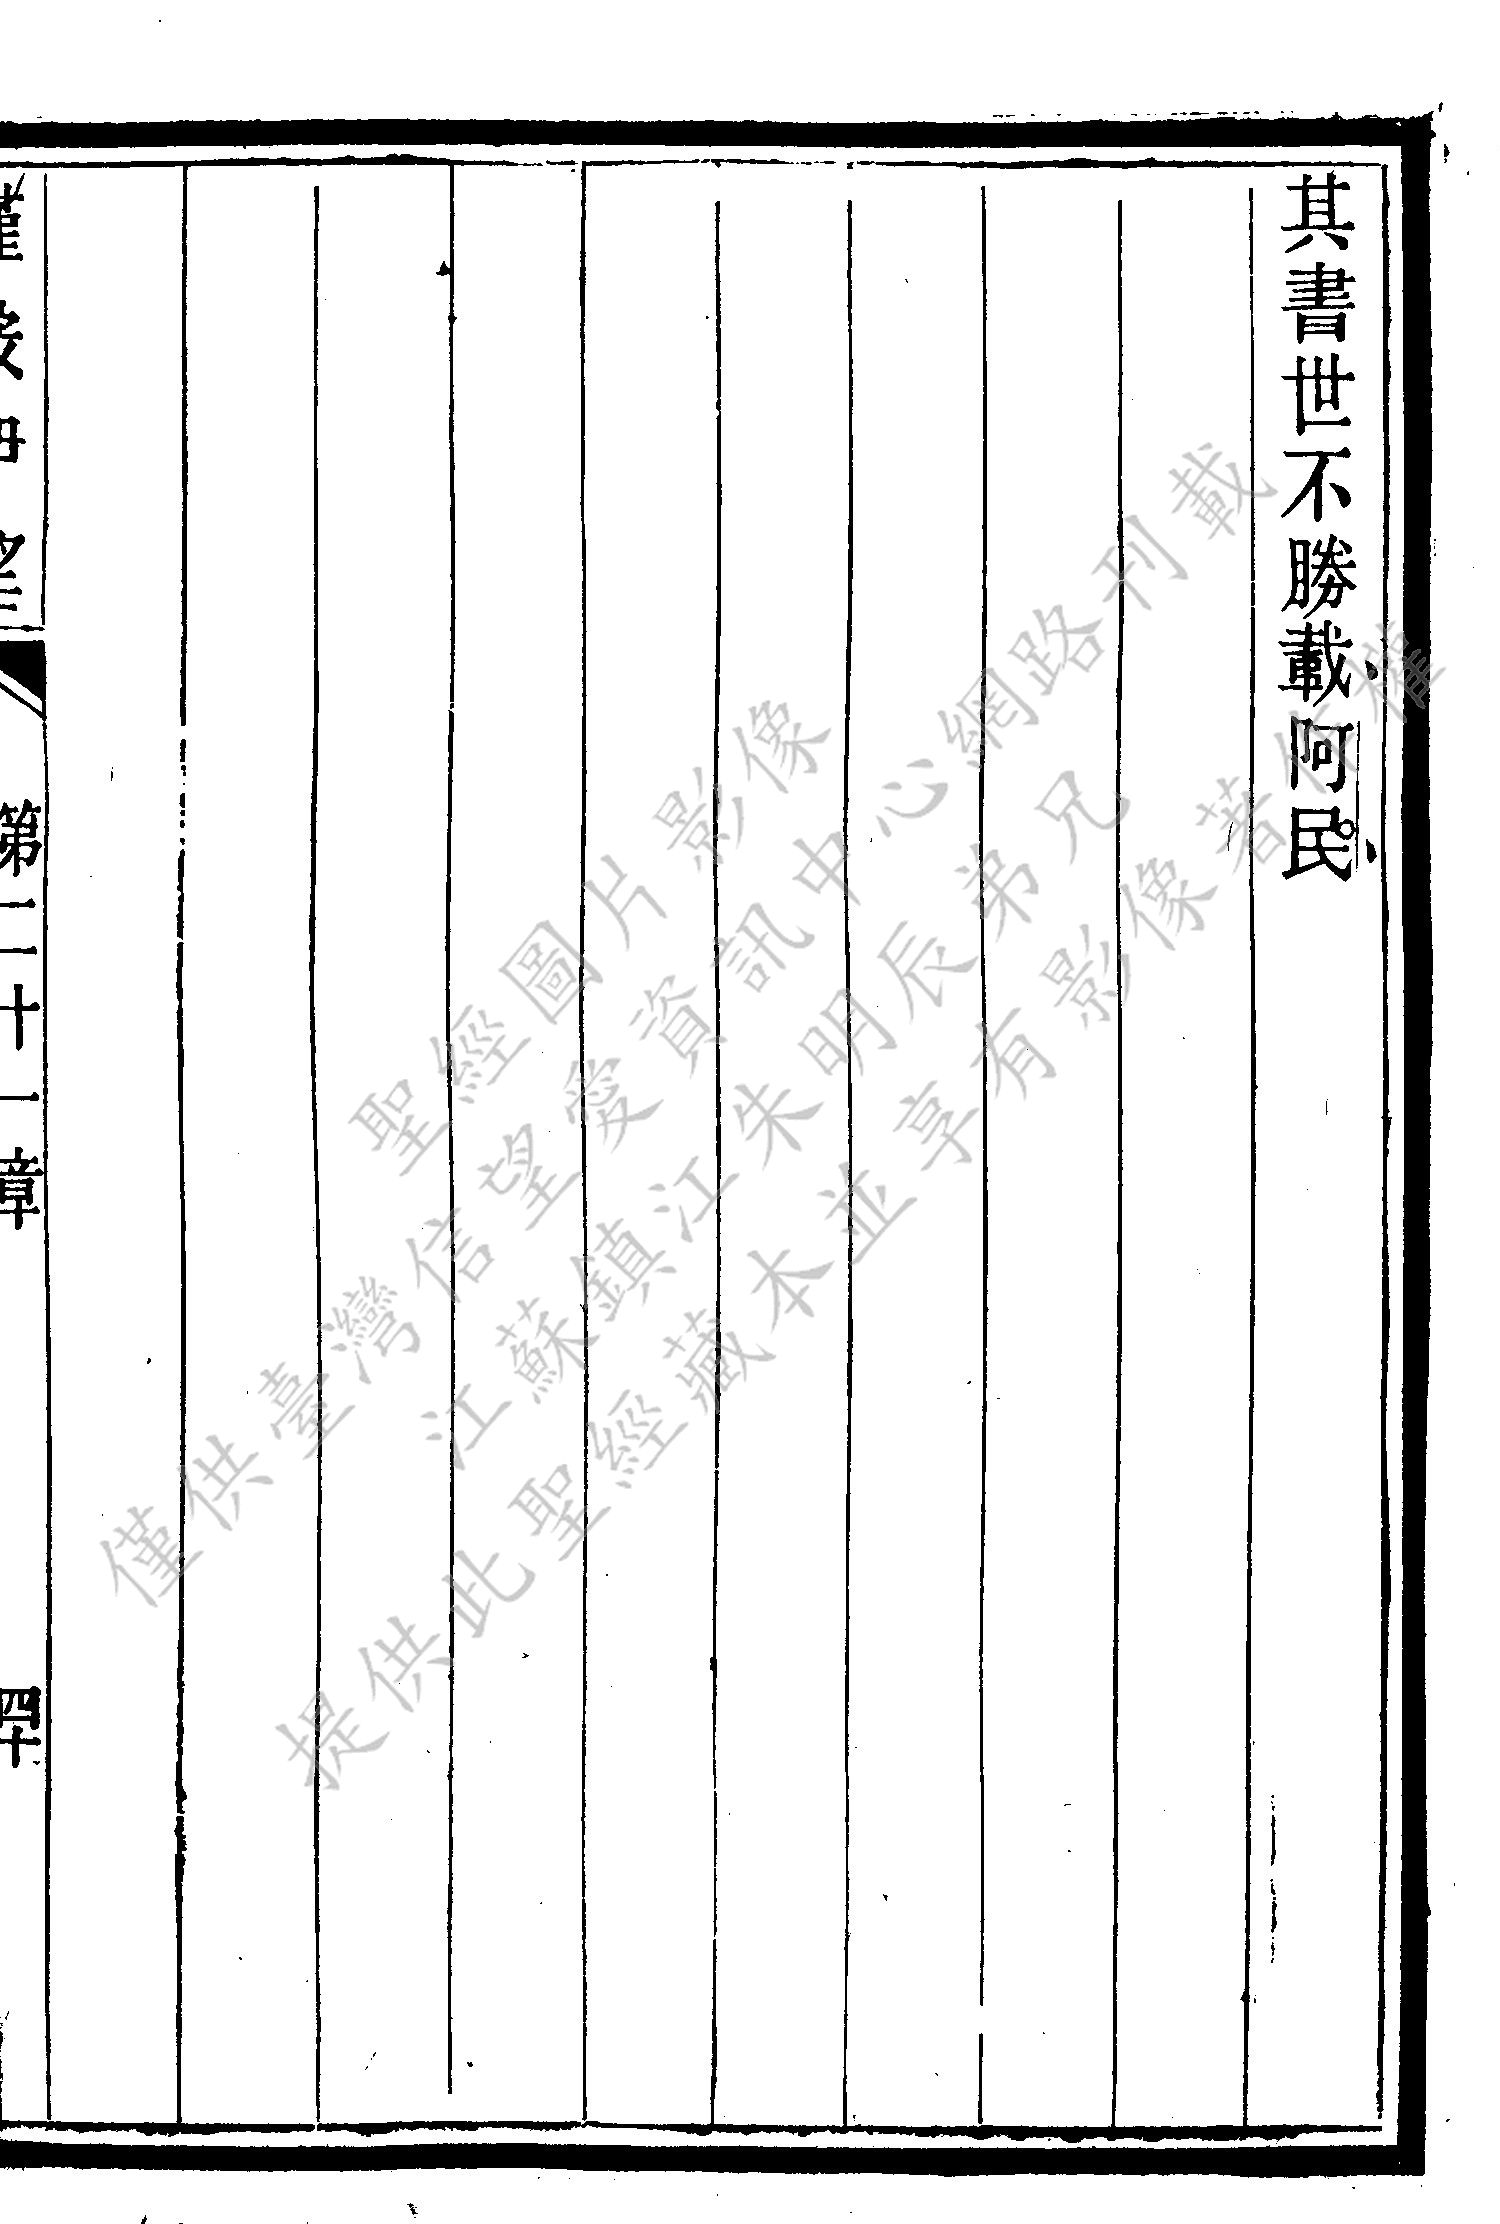 其書世不勝載阿民。
第二十一章
四十
聖經圖片影像
僅供臺灣信望愛資訊中心網路刊載
江蘇鎮江朱明辰弟兄
提供此聖經藏本並享有影像著作權